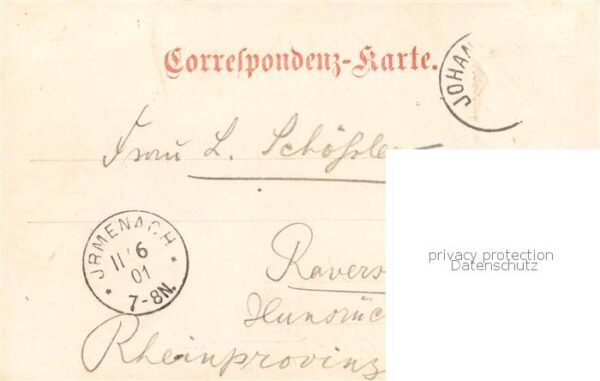 Correspondenz-Karte.
JOHAN
Frau L. Schößle
privacy protection
Datenschutz
JRMENACH
11 6
01
7-8N.
Ravers
Hunsrück
Rheinprovinz